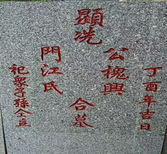 丁酉年吉日
公槐興
顯冼 合墓
門江氏
祀 子孫仝立